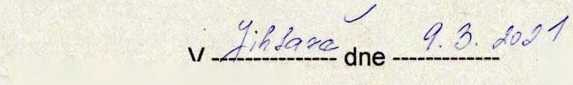 V Jihlavě dne 9. 3. 2021